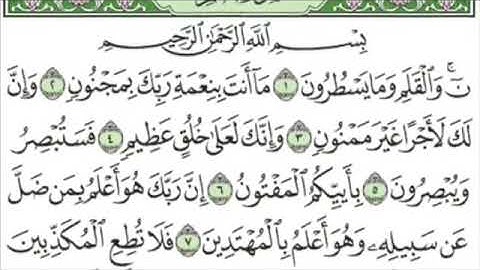 بِسْمِ اللَّهِ الرَّحْمَٰنِ الرَّحِيمِ
نٓ ۚ وَالْقَلَمِ وَمَا يَسْطُرُونَ ١ مَا أَنتَ بِنِعْمَةِ رَبِّكَ بِمَجْنُونٍ ٢ وَإِنَّ
لَكَ لَأَجْرًا غَيْرَ مَمْنُونٍ ٣ وَإِنَّكَ لَعَلَىٰ خُلُقٍ عَظِيمٍ ٤ فَسَتُبْصِرُ
وَيُبْصِرُونَ ٥ بِأَييِّكُمُ الْمَفْتُونُ ٦ إِنَّ رَبَّكَ هُوَ أَعْلَمُ بِمَن ضَلَّ
عَن سَبِيلِهِۦ وَهُوَ أَعْلَمُ بِالْمُهْتَدِينَ ٧ فَلَا تُطِعِ الْمُكَذِّبِينَ